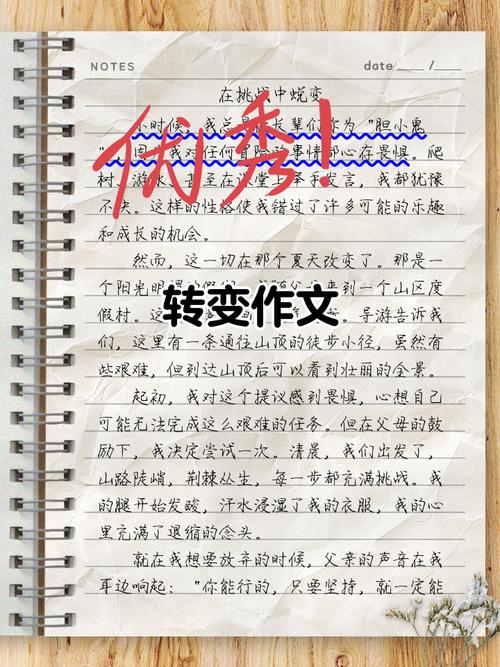 NOTES
date / 
在挑战中蜕变
优秀！
小时候，我总长辈们为“胆小鬼
”，因我对任何冒险事情都心存畏惧。爬
树、游泳、甚至在课堂上举手发言，我都犹豫
不决。这样的性格使我错过了许多可能的乐趣
和成长的机会。
然而，这一切在那个夏天改变了。那是一
个阳光明媚的假期，我随父母来到一个山区度
假村。这导游告诉我
转变作文
们，这里有一条通往山顶的徒步小径，虽然有
些艰难，但到达山顶后可以看到壮丽的全景。
起初，我对这个提议感到畏惧，心想自己
可能无法完成这么艰难的任务。但在父母的鼓
励下，我决定尝试一次。清晨，我们出发了，
山路陡峭，荆棘丛生，每一步都充满挑战。我
的腿开始发酸，汗水浸湿了我的衣服，我的心
里充满了退缩的念头。
就在我想要放弃的时候，父亲的声音在我
耳边响起：“你能行的，只要坚持，就一定能